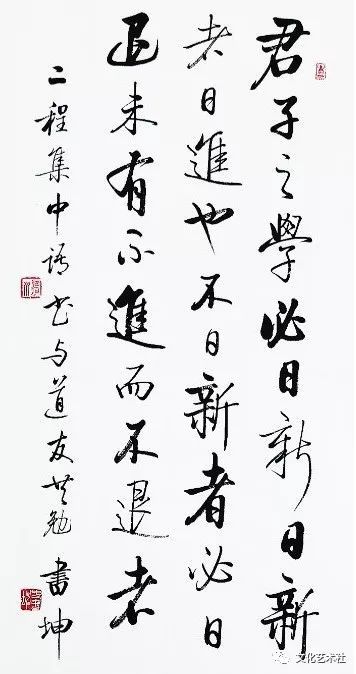 君子之學必日新日新
者日進也不日新者必日
退未有不進而不退者
二程集中语书与道友共勉 書坤
文化艺术社